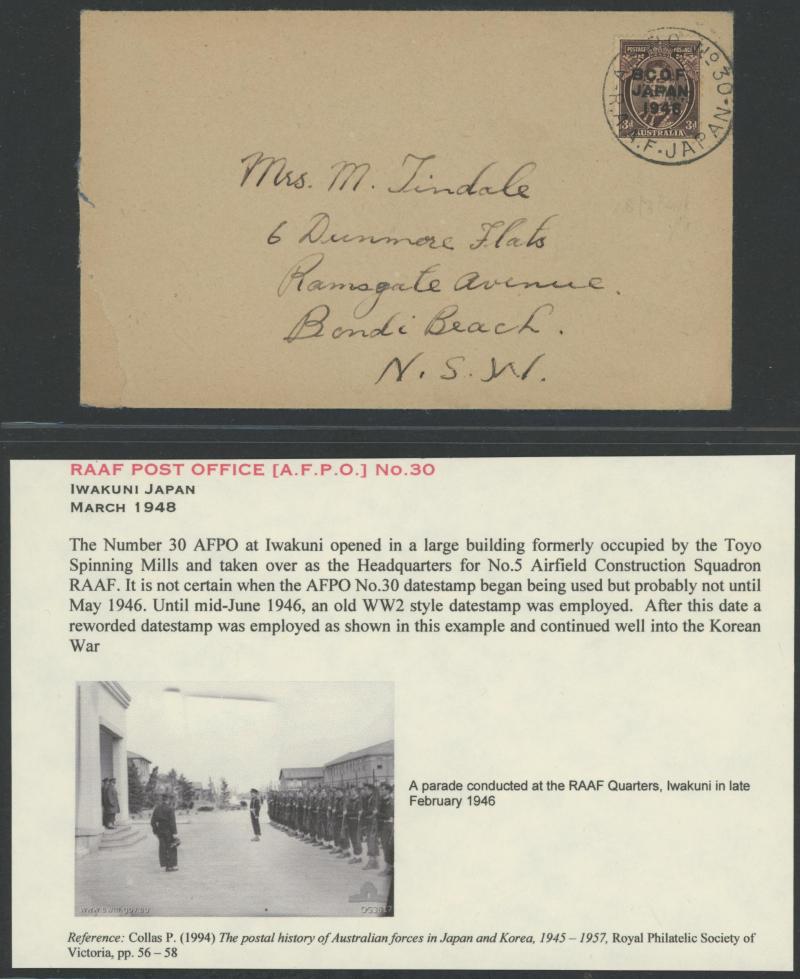 POSTAGE POSTAGE
B.C.O.F.
JAPAN
1946
3d 3d
AUSTRALIA
No 30
R.A.A.F. JAPAN
Mrs. M. Tindale
6 Dunmore Flats
Ramsgate Avenue.
Bondi Beach.
N. S. W.
RAAF POST OFFICE [A.F.P.O.] No.30
IWAKUNI JAPAN
MARCH 1948
The Number 30 AFPO at Iwakuni opened in a large building formerly occupied by the Toyo
Spinning Mills and taken over as the Headquarters for No.5 Airfield Construction Squadron
RAAF. It is not certain when the AFPO No.30 datestamp began being used but probably not until
May 1946. Until mid-June 1946, an old WW2 style datestamp was employed. After this date a
reworded datestamp was employed as shown in this example and continued well into the Korean
War
A parade conducted at the RAAF Quarters, Iwakuni in late
February 1946
www.awm.gov.au
Reference: Collas P. (1994) The postal history of Australian forces in Japan and Korea, 1945 – 1957, Royal Philatelic Society of
Victoria, pp. 56 – 58